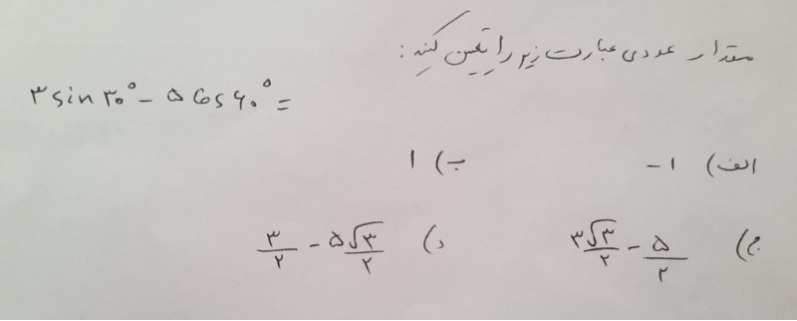 مقدار عددی عبارت زیر را تعیین کنید:
۳ sin ۳۰° - ۵ Cos ۶۰° =
الف) ۱- ب) ۱
ج) ۳√۳/۲ - ۵/۲ د) ۳/۲ - ۵√۳/۲